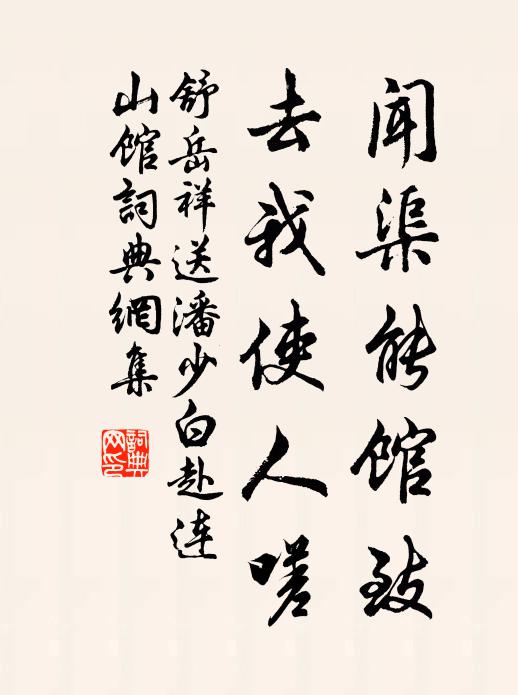 闻渠能馆致
去我使人嗟
舒岳祥送潘少白赴连
山馆詞典網集
詞典网印